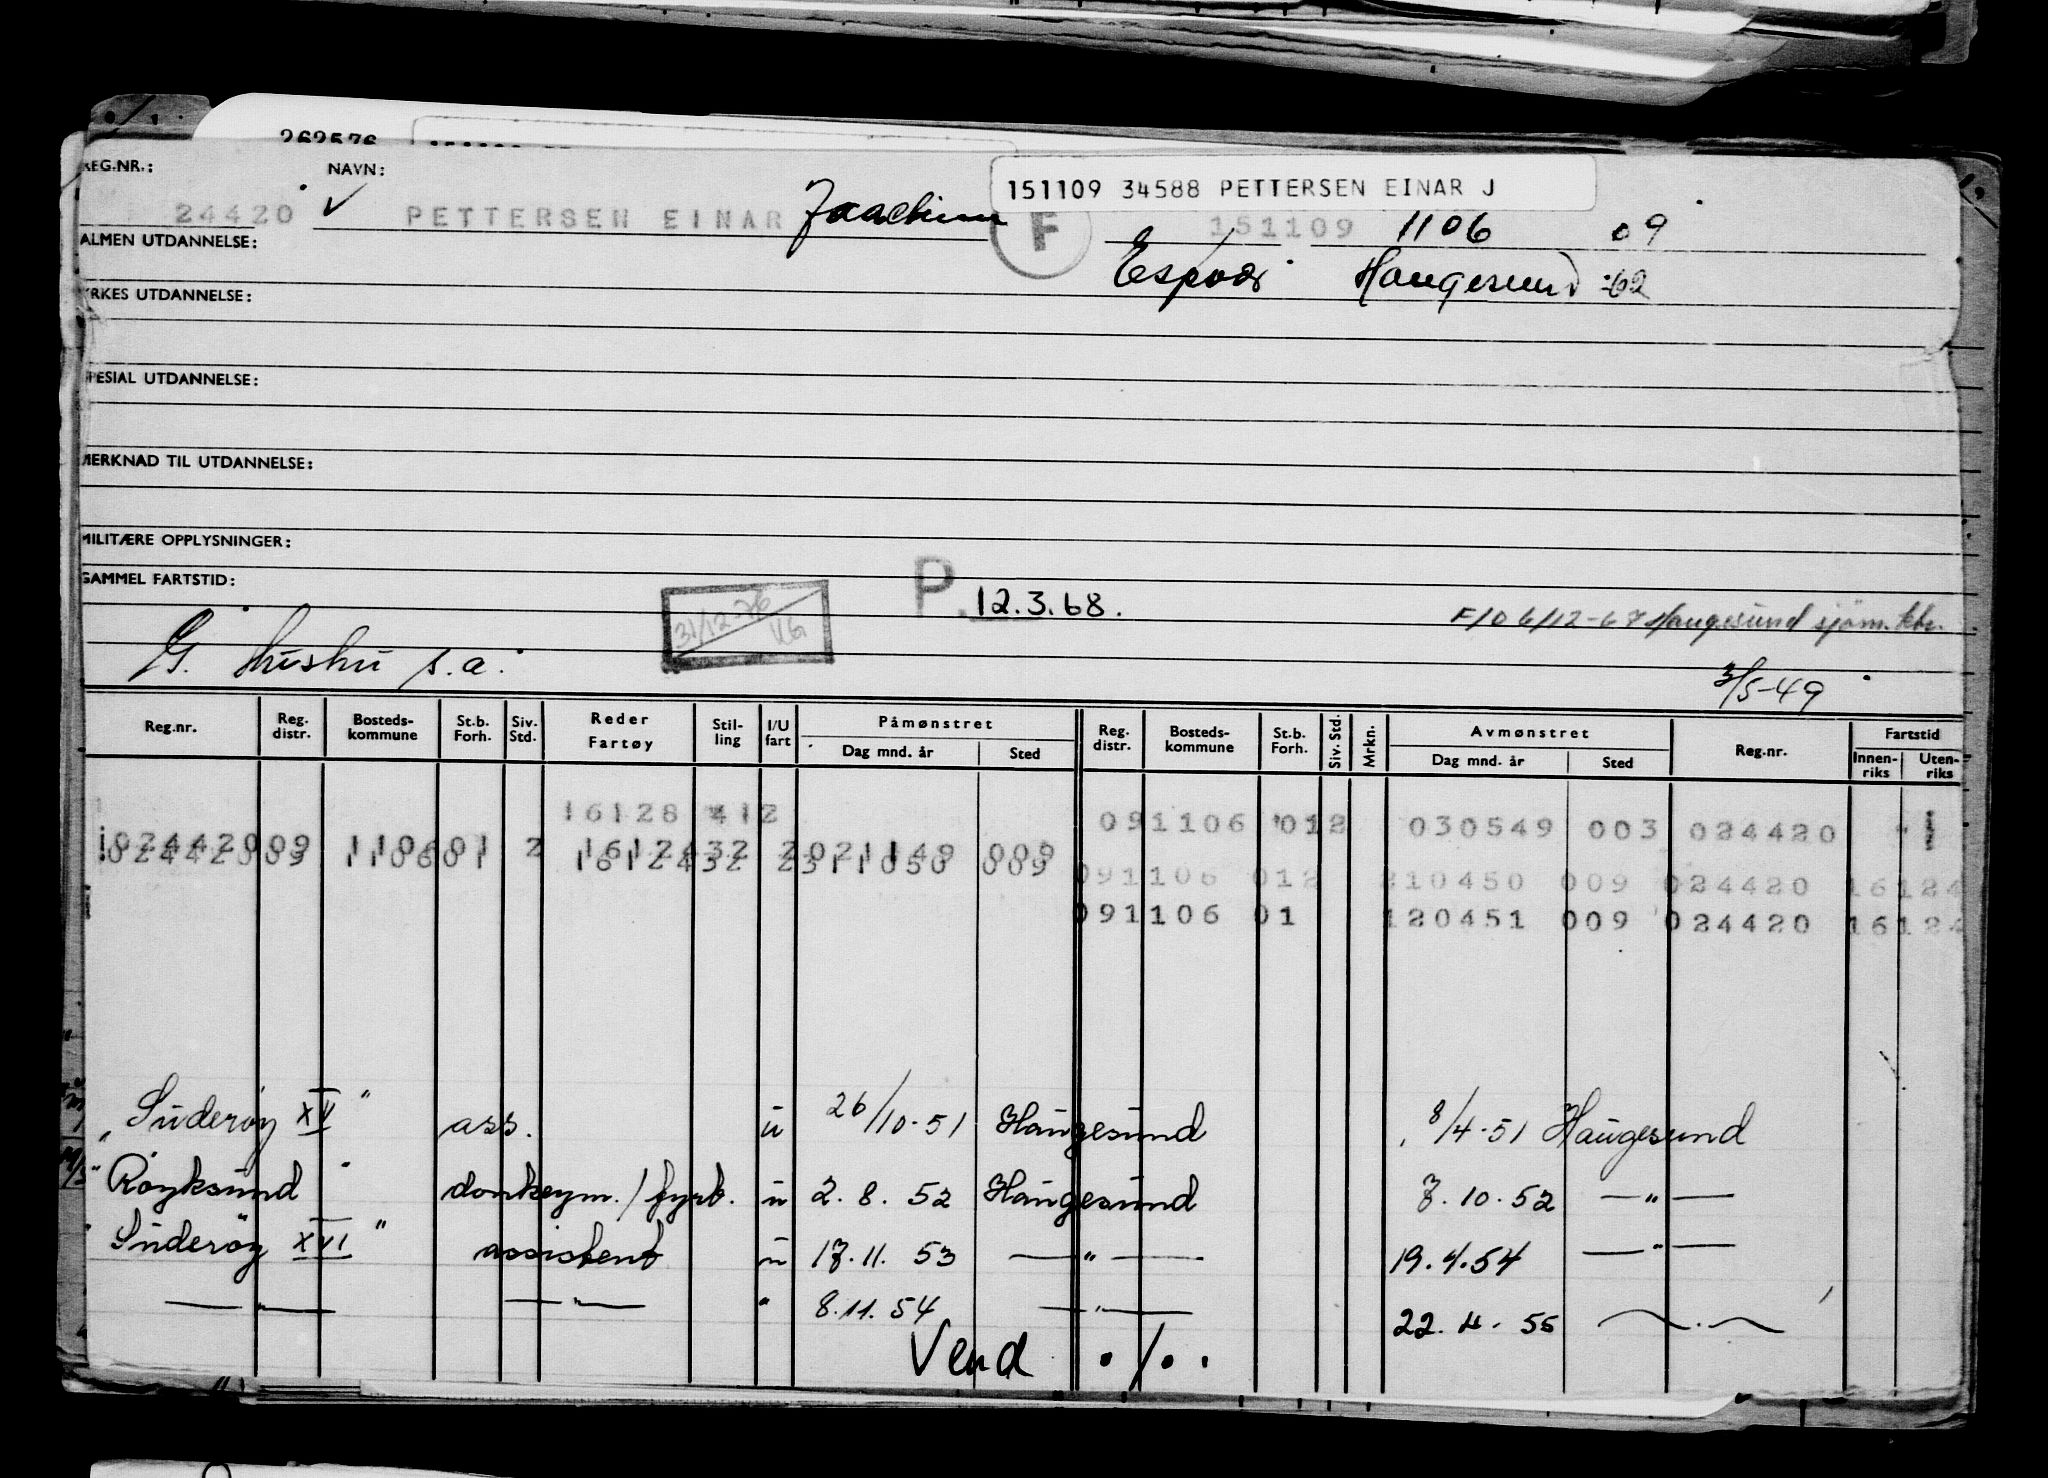 262576
REG.NR.: NAVN: 151109 34588 PETTERSEN EINAR J
24420 ✓ PETTERSEN EINAR Joachim F 151109 1106 09
ALMEN UTDANNELSE: Espvær Haugesund -62
YRKES UTDANNELSE:
SPESIAL UTDANNELSE:
MERKNAD TIL UTDANNELSE:
MILITÆRE OPPLYSNINGER:
GAMMEL FARTSTID:
31/12-76 P. 12.3.68. F/O 6/12-67 Haugesund sjøm.ktr.
G. s.a. 3/5-49
Reg.nr. Reg. distr. Bosteds-kommune St.b. Forh. Siv. Std. Reder Fartøy Stil-ling I/U fart Påmønstret Dag mnd. år Sted Reg. distr. Bosteds-kommune St.b. Forh. Siv. Std. Mrkn. Avmønstret Dag mnd. år Sted Reg.nr. Fartstid Innen-riks Uten-riks
16128 412 091106 012 030549 003 024420
091106 012 210450 009 024420 16124
091106 01 120451 009 024420 16124
"Suderøy XV" ass. u 26/10-51 Haugesund 8/4-51 Haugesund
"Røyksund" donkeym./fyrb. u 2.8.52 Haugesund 7.10.52 —"—
"Suderøy XVI" assistent u 17.11.53 —"— 19.4.54 —"—
—"— —"— " 8.11.54 —"— 22.4.55
Vend ./..